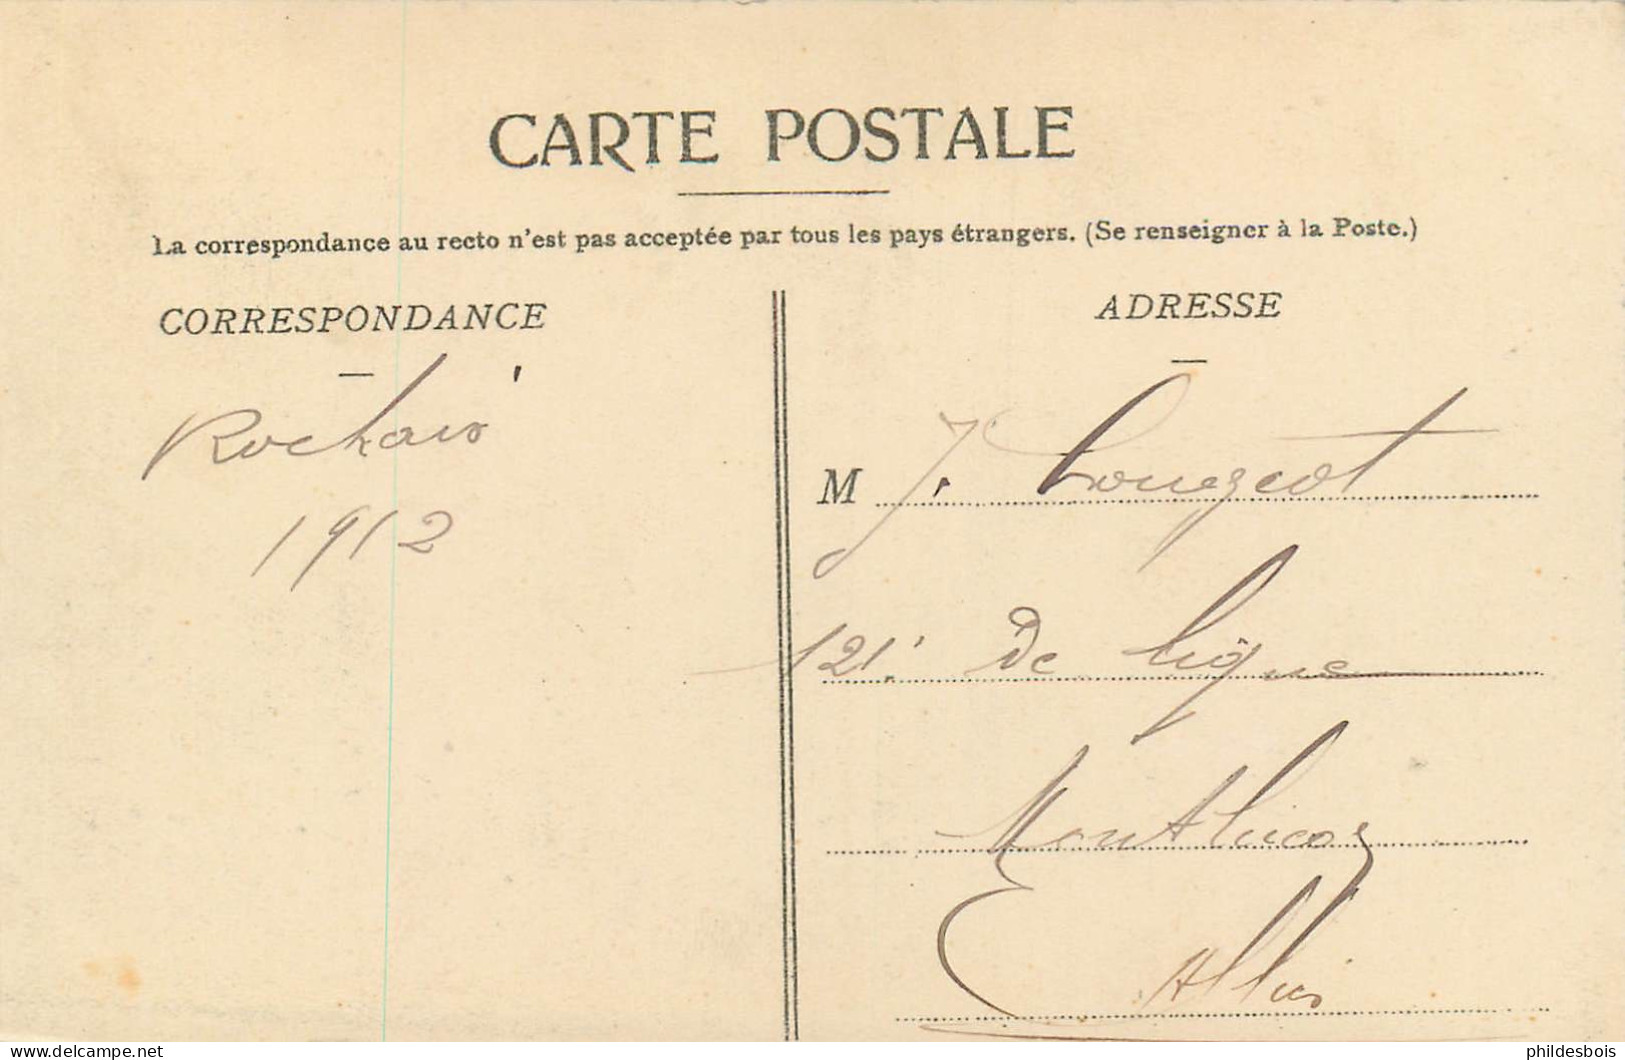 CARTE POSTALE
La correspondance au recto n'est pas acceptée par tous les pays étrangers. (Se renseigner à la Poste.)
CORRESPONDANCE
1912
ADRESSE
M J.
121e de ligne
Montluçon
Allier
phildesbois